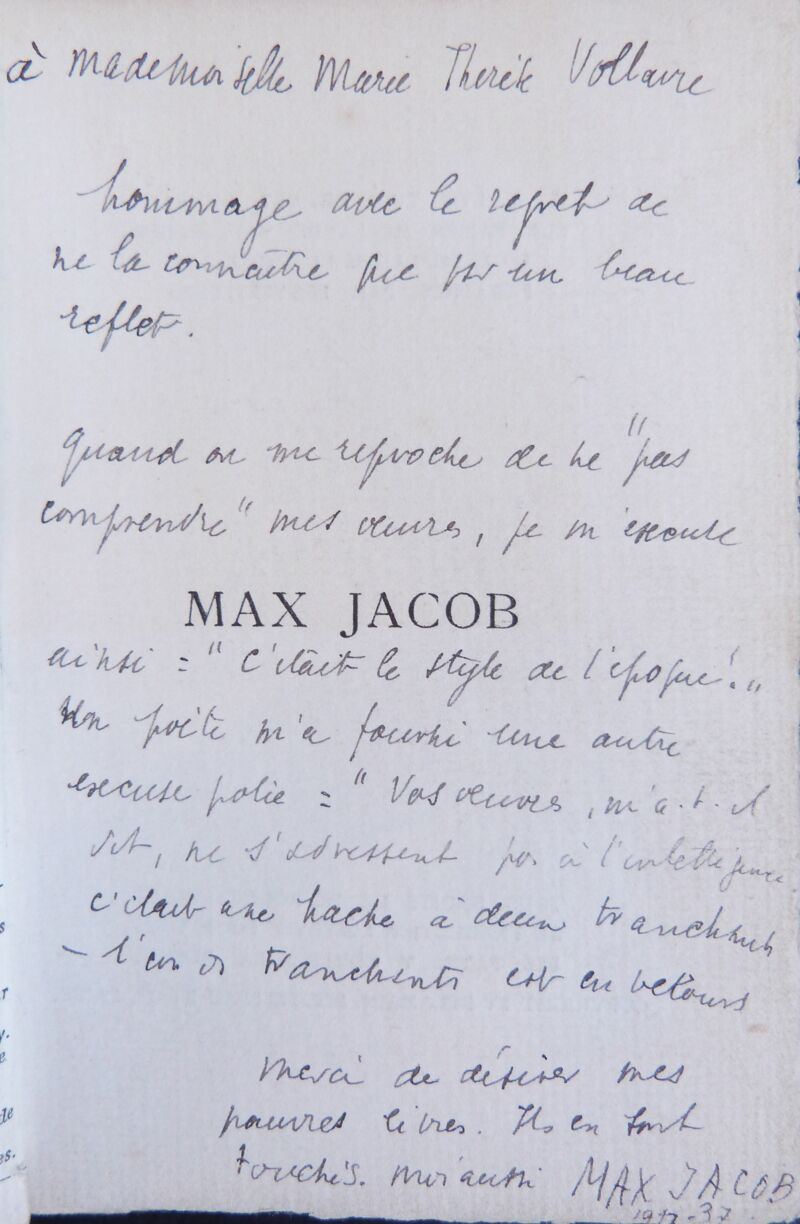 à Mademoiselle Marie Therèse Vollaire
hommage avec le regret de
ne la connaître que par un beau
reflet.
Quand on me reproche de ne "pas
comprendre" mes œuvres, je m'excuse
MAX JACOB
ainsi = "C'était le style de l'époque!"
Un poète m'a fourni une autre
excuse polie = "Vos œuvres, m'a-t-il
dit, ne s'adressent pas à l'intelligence
c'était une hache à deux tranchants
- l'un des tranchants est en velours
Merci de désirer mes
pauvres livres. Ils en sont
touchés. Moi aussi MAX JACOB
37
r
y.
e
de
es.